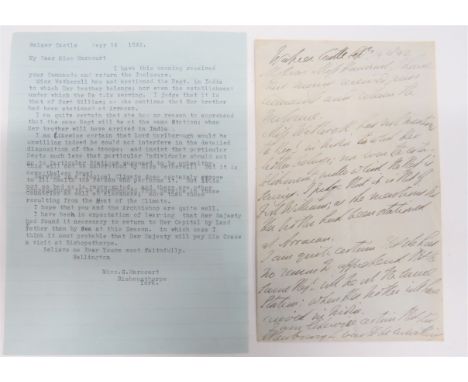 Walmer Castle Sept 14 1842.
My Dear Miss Harcourt
I have this morning received
your Commands and return the Inclosure.
Miss Wetherell has not mentioned the Regt. in India
to Which Her brother belongs; nor even the establishment
under which the Regt is serving. I judge that it is
that of Fort William; as she mentions that Her brother
had been stationed at Arracan.
I am quite certain that she has no reason to apprehend
that the same Regt will be at the same Station; when
Her brother will have arrived in India.
I am likewise certain that Lord Ellenborough would be
unwilling indeed he could not interfere in the detailed
disposition of the troops; and insist that particular
Regts much less that particular Individuals should not
resulting from the Heat of the Climate.
I hope that you and the Archbishop are quite well.
I have been in expectation of learning that Her Majesty
had found it necessary to return to Her Capital by Land
rather than by Sea at this Season. in which case I
think it most probable that Her Majesty will pay His Grace
a visit at Bishopsthorpe.
Believe me Ever Yours most faithfully.
Wellington
Miss.G.Harcourt
Bishopsthorpe
York.
Walmer Castle Sept 14 1842
My Dear Miss Harcourt I have
this morning received your
Commands and return the
Inclosure.
Miss Wetherell has not mentioned
the Regt in India to which Her
brother belongs; nor even the esta-
blishment under which the Regt is
serving. I judge that it is that of
Fort William; as she mentions that
Her brother had been stationed
at Arracan.
I am quite certain that she has
no reason to apprehend that the
same Regt will be at the same
Station; when Her brother will have
arrived in India.
I am likewise certain that Lord
Ellenborough would be unwilling